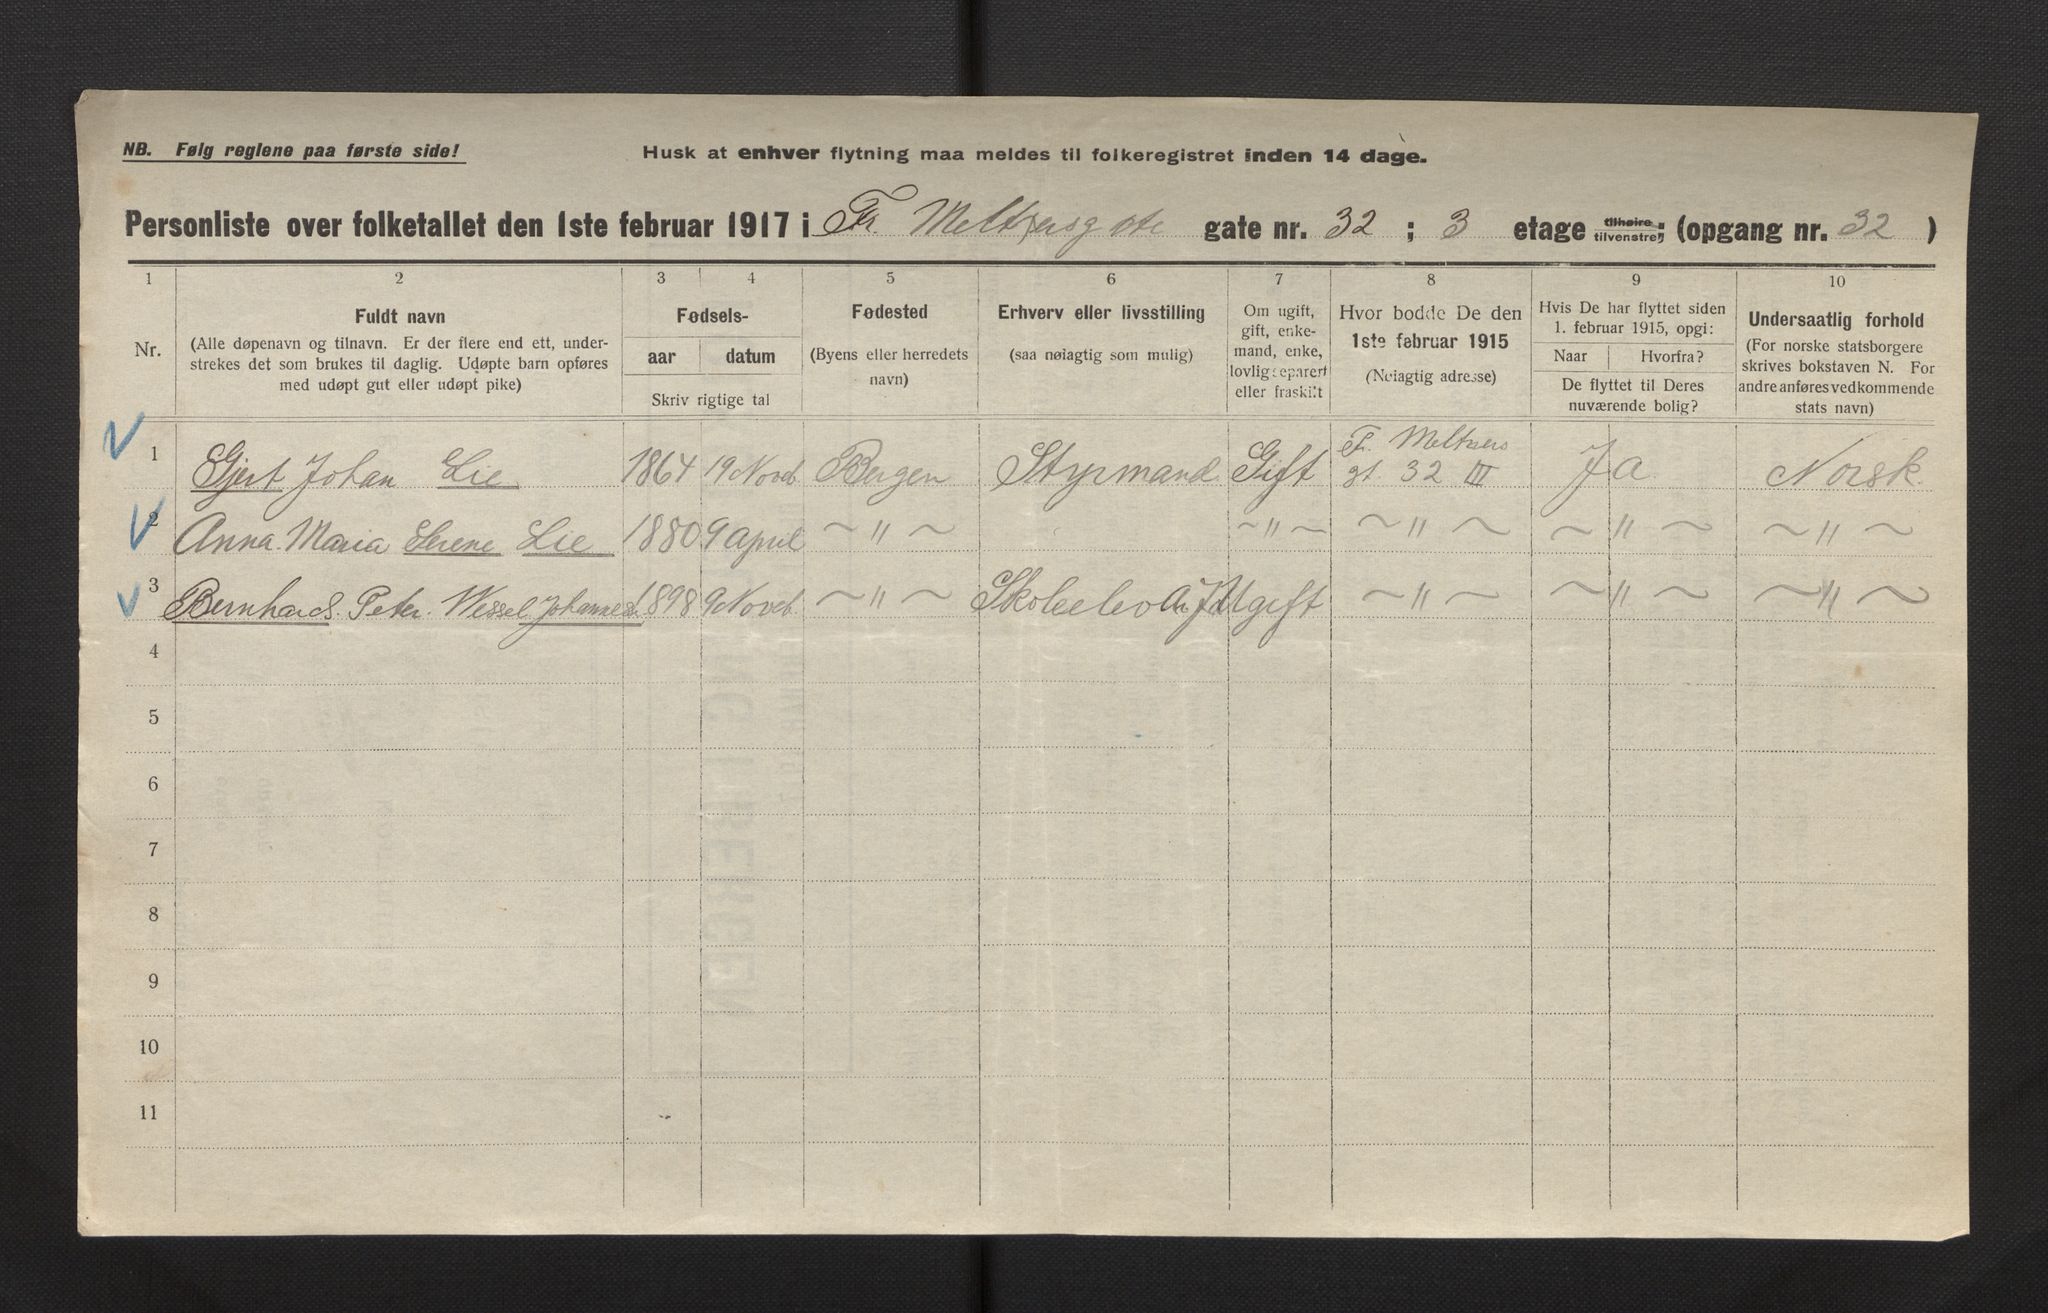 NB. Følg reglene paa første side!
Husk at enhver flytning maa meldes til folkeregistret inden 14 dage.
Personliste over folketallet den 1ste februar 1917 i Fr. Meltzersgate gate nr. 32 ; 3 etage tilhøire tilvenstre; (opgang nr. 32 )
1 2 3 4 5 6 7 8 9 10
Nr.
Fuldt navn
(Alle døpenavn og tilnavn. Er der flere end ett, under-
strekes det som brukes til daglig. Udøpte barn opføres
med udøpt gut eller udøpt pike)
Fødsels-
aar datum
Skriv rigtige tal
Fødested
(Byens eller herredets
navn)
Erhverv eller livsstilling
(saa nøiagtig som mulig)
Om ugift,
gift, enke-
mand, enke,
lovlig separert
eller fraskilt
Hvor bodde De den
1ste februar 1915
(Nøiagtig adresse)
Hvis De har flyttet siden
1. februar 1915, opgi:
Naar Hvorfra?
De flyttet til Deres
nuværende bolig?
Undersaatlig forhold
(For norske statsborgere
skrives bokstaven N. For
andre anføres vedkommende
stats navn)
1 Gjert Johan Lie 1864 19 Novb Bergen Styrmand Gift Fr. Meltzers gt. 32 III Ja Norsk.
2 Anna Maria Serene Lie 1880 9 April ~ " ~ ~ " ~ ~ " ~ ~ " ~ ~ " ~
3 Bernhard Peter Wessel 1898 9 Novb ~ " ~ Skoleelev Ugift ~ " ~ ~ " ~ ~ " ~
4
5
6
7
8
9
10
11